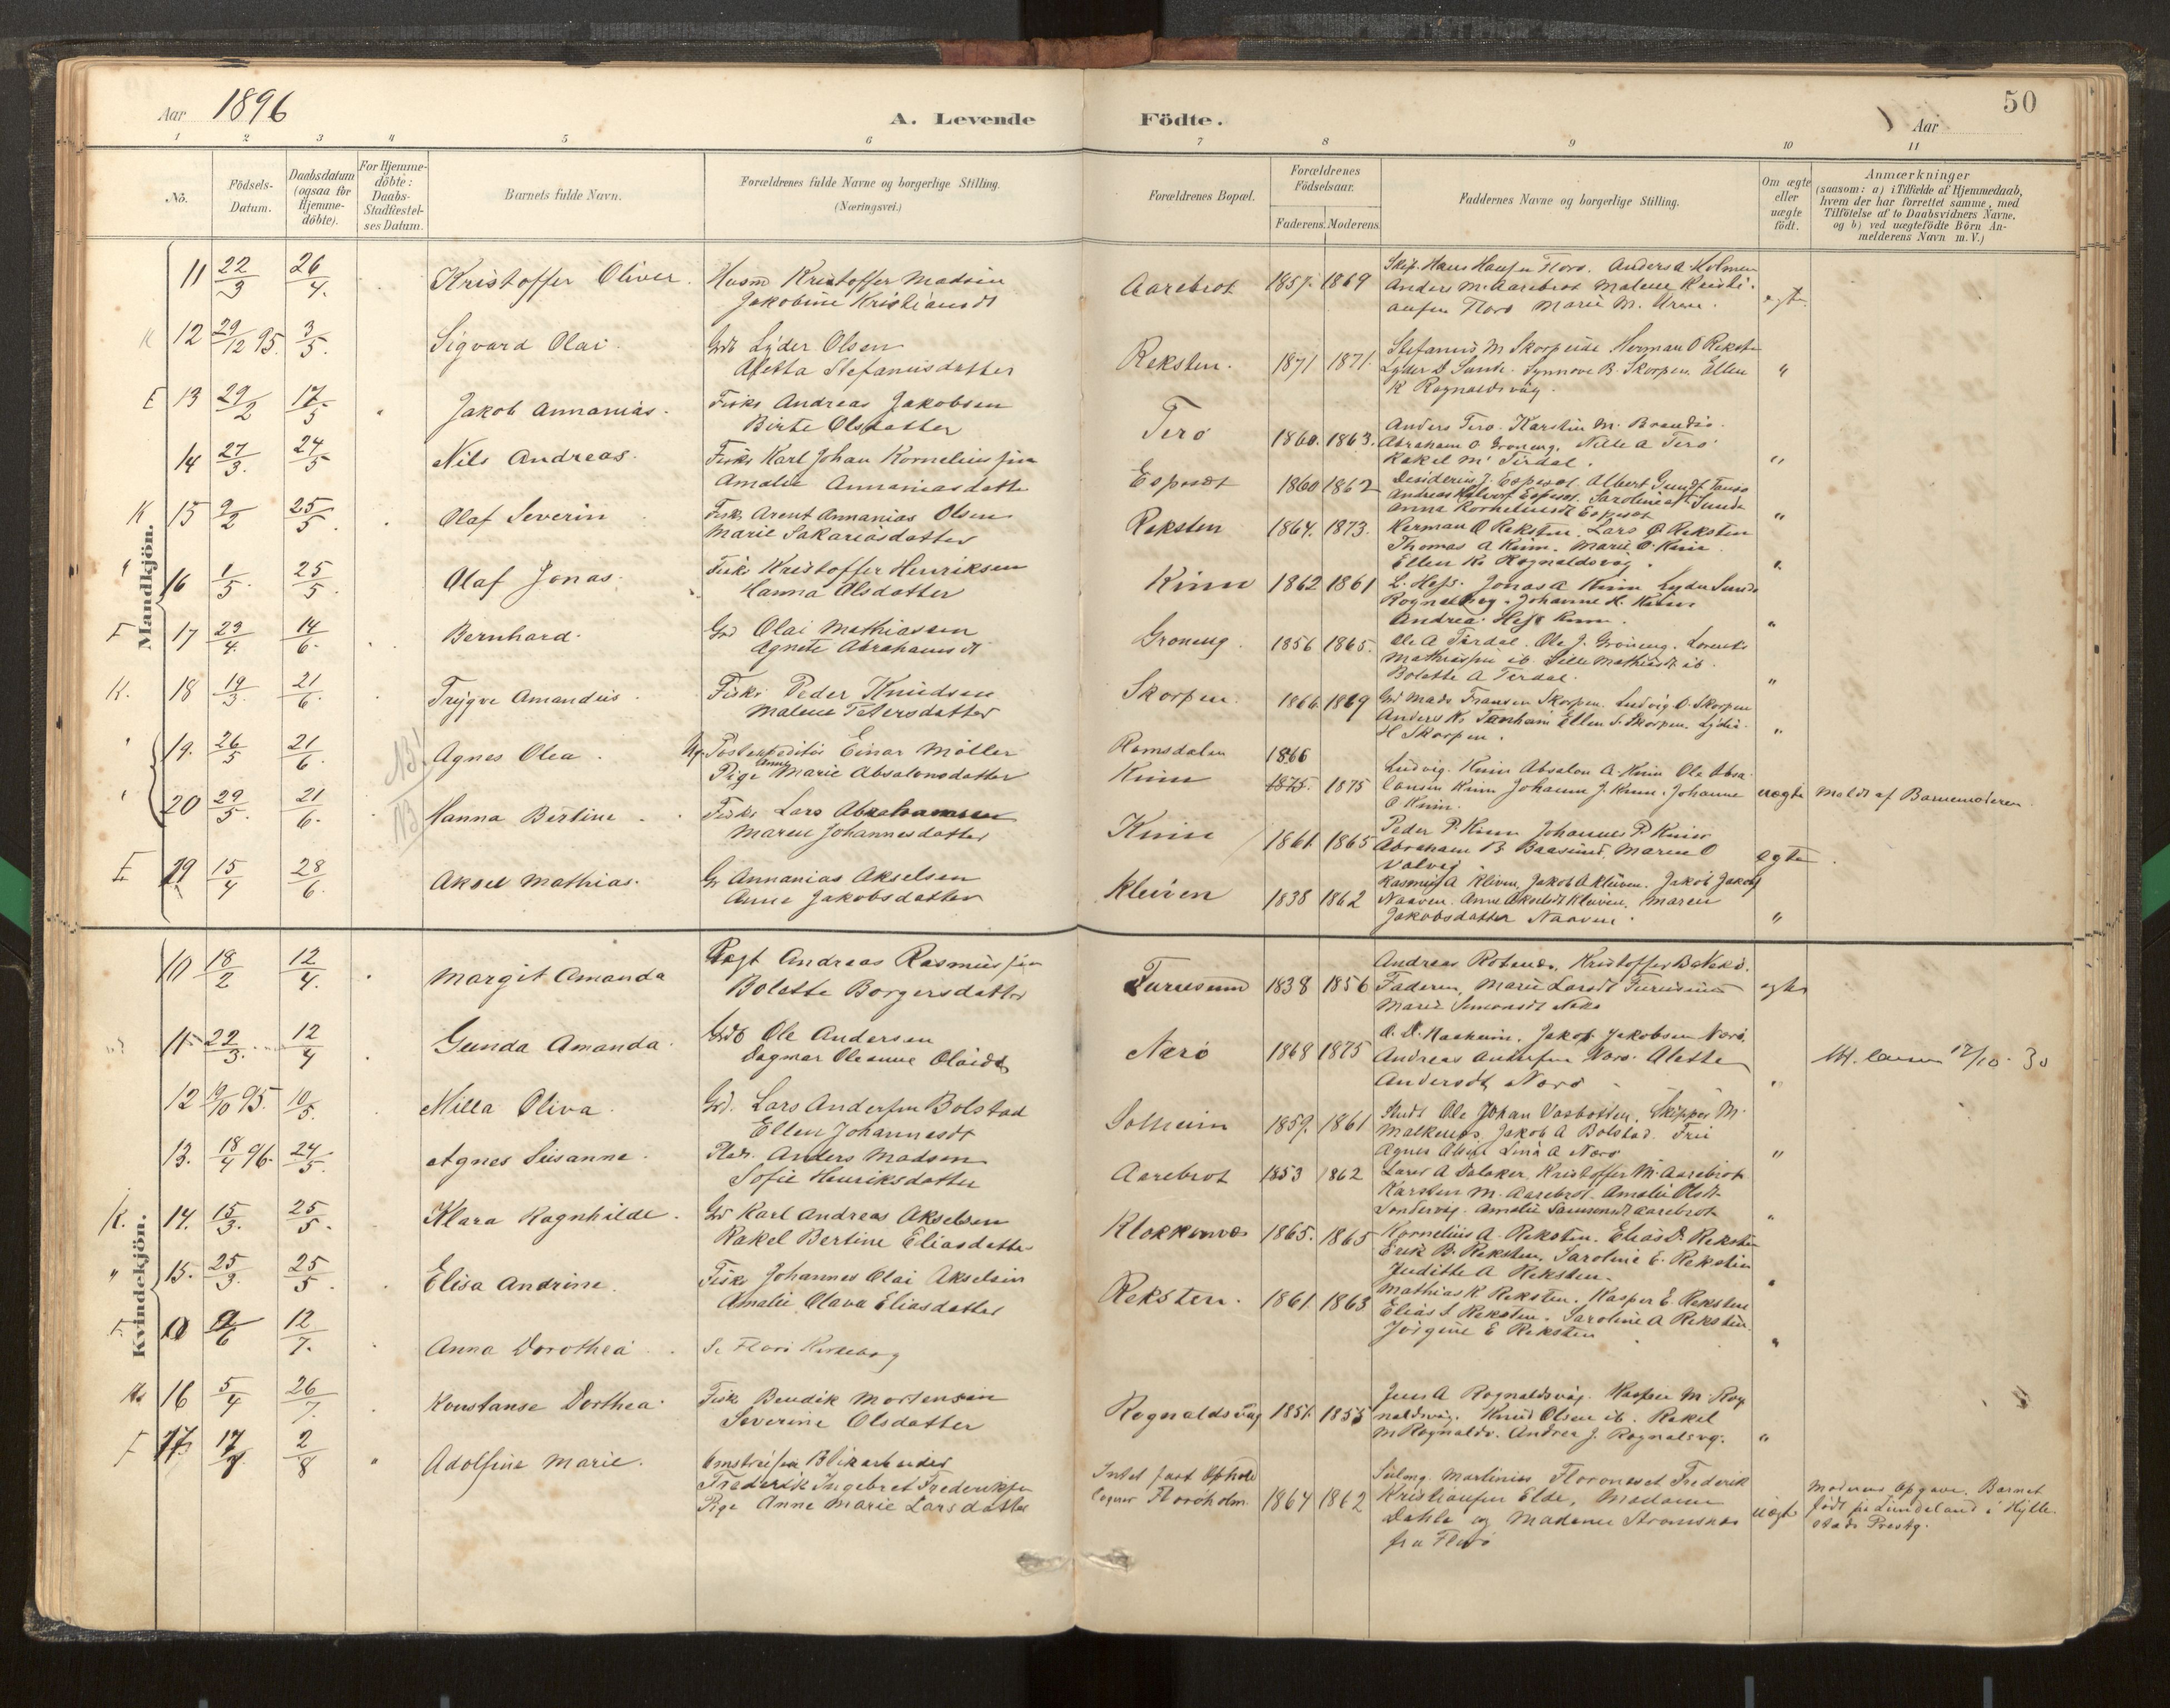 Aar 1896
A. Levende Födte.
50
Aar
1 2 3 4 5 6 7 8 9 10 11
No.
Födsels-Datum.
Daabsdatum (ogsaa for Hjemme-döbte).
For Hjemme-döbte: Daabs-Stadfæstel-ses Datum.
Barnets fulde Navn.
Forældrenes fulde Navne og borgerlige Stilling. (Næringsvei.)
Forældrenes Bopæl.
Forældrenes Födselsaar.
Faderens. Moderens.
Faddernes Navne og borgerlige Stilling.
Om ægte eller uægte födt.
Anmærkninger
(saasom: a) i Tilfælde af Hjemmedaab, hvem der har forrettet samme, med Tilföielse af to Daabsvidners Navne, og b) ved uægtefödte Börn An-melderens Navn m.V.)
Mandkjön.
11 22/3 26/4. Kristoffer Oliver. Husm Kristoffer Madsen
Jakobine Kristiansdt
Aarebrot 1857. 1869 Skip. Hans Hansen Floro. Anders A Holmen
Anders M. Aarebrot Malene Kristi-
ansen Floro Marie M. Uren. egte
K 12 29/12 95. 3/5. Sigvard Olai. Grdb Lyder Olsen
Aletta Stefanusdatter
Reksten. 1871 1871. Stefanus M Skorpeide Herman O Reksten
Lyder S Sunde. Synnove B. Skorpen Ellen
K Rognaldsvåg. "
E 13 29/2 17/5 Jakob Annanias. Fisks Andreas Jakobsen
Birte Olsdatter
Terö 1860. 1863. Anders Terö. Karstin M. Brandsö.
Abraham O Groneng. Nille A Terö
Rakel M Tirdal. "
14 27/3. 24/5 Nils Andreas. Fisks Karl Johan Korneliussen
Amalie Annaniasdatter
Espeset 1860 1862 Desiderius J. Espeset Albert
Anna Korneliusdt Espeset "
K 15 9/2 25/5. Olaf Severin Fisks Arent Annanias Olsen
Marie Sakariasdatter
Reksten 1864. 1873. Herman O Reksten. Lars O Reksten
Thomas A Kinn. Marie O. Kinn
Ellen K. Rognaldsvåg. "
" 16 1/5. 25/5. Olaf Jonas. Fisks Kristoffer Henriksen
Hanna Olsdatter
Kinn 1862 1861 L. Hess. Jonas A Kinn Lyder Sunde
Johanne H. Kinn
Andrea Hess Kinn. "
F 17 23/4. 14/6. Bernhard. Grd Olai Mathiassen
Agnete Abrahamsdt
Groneng. 1856 1865. Ole A Tirdal. Ole J. Groneng. Lorents
Mathiassen ib Sille Mathiasdt ib.
Bolette A Terdal. "
K. 18 19/3. 21/6. Trygve Amandus. Fisks Peder Knudsen
Malene Petersdatter
Skorpen. 1866. 1869 Grd Mads Fransen Skorpen. Ludvig O. Skorpen
Anders K. Tanheim Ellen S. Skorpen. Lydia
H Skorpen. "
" 19. 26/5 21/6. NB! Agnes Olea. Ug. Postexpeditör Einar Möller
Pige Anne Marie Absalonsdatter
Romsdalen 1866
Kinn 1875. 1875 Ludvig. Kinn Absalon A. Kinn Ole Absa-
lonsen Kinn Johann J. Kinn. Johanne
O Kinn. uægte Meldt af Barnemoderen
" 20 29/5. 21/6. NB Hanna Bertine. Fisks Lars Abrahamsen
Maren Johannesdatter
Kinn 1861 1865 Peder P. Kinn Johannes P. Kinn
Abraham B Baasund. Maren O
Valvåg. egte.
E 29 15/4 28/6. Aksel Mathias. G Annanias Akselsen
Anne Jakobsdatter
Kleiven 1838 1862 Rasmus A Kliven, Jakob A Kleiven. Jakob Jakobs
Naaven. Anne Akselsdt Kleiven. Maren
Jakobsdatter Naaven. "
Kvindekjön.
10 18/2 12/4. Margit Amanda Andreas Rasmussen
Bolette Borgersdatter
1838 1856 Andreas Kristoffer
Faderen, Marie Larsdt
Marie Simonsdt egte
11 22/3. 12/4 Gunda Amanda. Grdb Ole Andersen
Dagmar Oleanne Olaisdt
Nærö 1868 1875 Jakob Jakobsen Nærö.
Andreas Nærö. Alette
Andersdt Nærö " 12/10 - 30
12 19/10 95. 10/5. Milla Oliva. Grd. Lars Andersen Bolstad
Ellen Johannesdt
Solheim 1859. 1861 Ole Johan Vasbotten. Skipper M.
Jakob A Bolstad. Frü
Lina A Nærö "
13. 18/4 96. 24/5. Agnes Susanne. Anders Madsen
Sofie Henriksdatter
Aarebrot 1853 1862 Lars A Dalaker, Kristoffer M. Aarebrot
Karsten M. Aarebrot. Amalie Olsdt
Söndervåg. Amalie Samsonsdt Aarebrot "
K. 14. 15/3. 25/5. Klara Ragnhilde. Grd Karl Andreas Akselsen
Rakel Bertine Eliasdatter
Klokkernes 1865. 1865 Kornelius A. Reksten. Elias D. Reksten
Erik B. Reksten. Saroline E. Reksten
Juditte A Reksten. "
" 15. 25/3. 25/5. Elisa Andrine. Fisks Johannes Olai Akselsen
Amalie Olava Eliasdatter
Reksten. 1861. 1863 Mathias K Reksten. Kasper E. Reksten
Elias S Reksten. Saroline A Reksten.
Jörgine E Reksten "
F. 0 9/6 12/7. Anna Dorothea. Se Florö Kirkebog
16 5/4 26/7. Konstanse Dorthea. Fisk Bendik Mortensen
Severine Olsdatter
Rognaldsvåg 1851. 1855 Jens A Rognaldsvåg. Kasper M. Rog-
naldsvåg. Knud Olsen ib. Rakel
M Rognaldsv. Andrea J. Rognaldsvg. "
F 17 2/8 " Adolfine Marie. Blikarbeider
Frederik Ingebret Frederiksen
Pige Anne Marie Larsdatter
Intet fast Ophold
Floröholm. 1864 1862 Martinius Floroneset Frederik
Kristiansen Elde, Madame
Dahle og Madame Strömsnes
fra Florö uægte Moderens Opgave. Barnet
födt på Lundeland i Hylle-
stads Prestg.